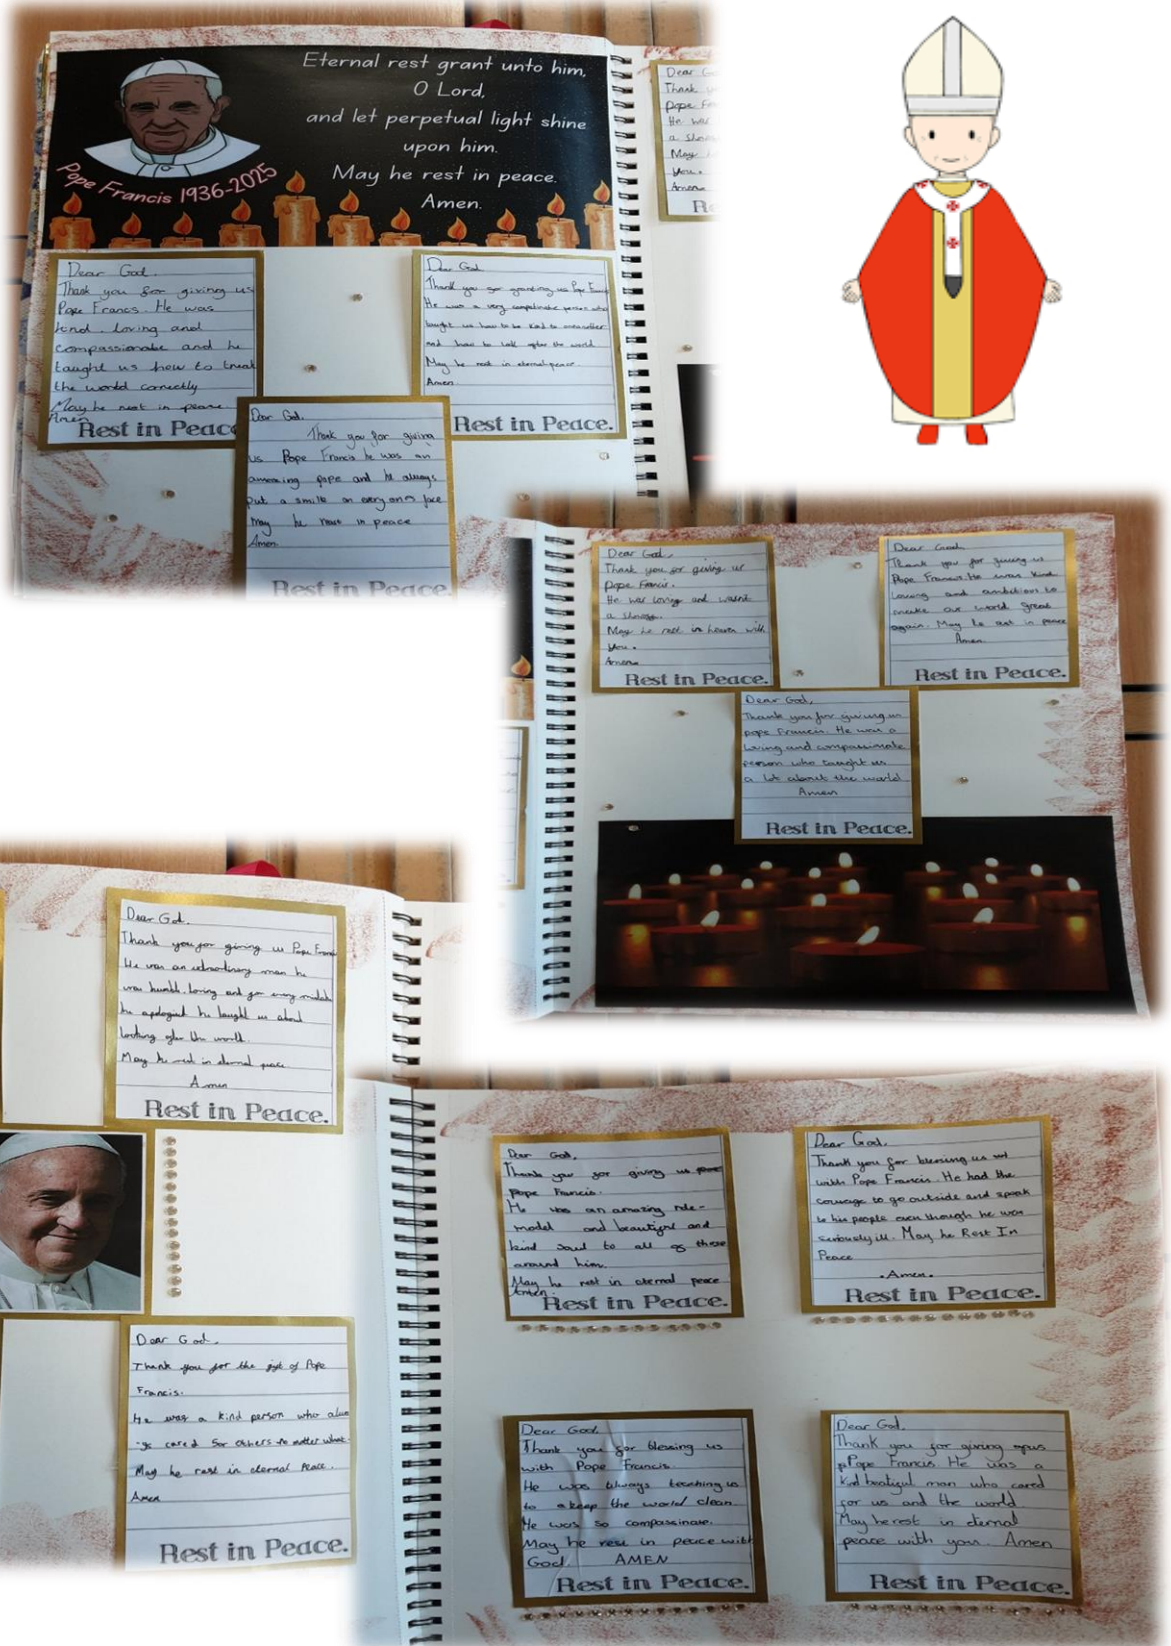 Eternal rest grant unto him,
O Lord,
and let perpetual light shine
upon him.
May he rest in peace.
Amen.
Pope Francis 1936-2025
Dear God,
Thank you for giving us
Pope Francis. He was
kind, loving and
compassionate and he
taught us how to treat
the world correctly
May he rest in peace
Amen
Rest in Peace
Dear God
Thank you for granting us Pope
He was a very person who
taught us how to be kind to
and how to look after the world
May he rest in eternal peace.
Amen
Rest in Peace.
Dear God,
Thank you for giving
us Pope Francis he was an
amazing pope and he always
put a smile on face
May he rest in peace
Amen.
Rest in Peace
Dear
Thank
Pope
He was
a
May
you.
Amen
Re
Dear God,
Thank you for giving us
Pope Francis.
He was loving and wasn't
a
May he rest in heaven with
you.
Amen
Rest in Peace.
Dear God
Thank you for giving us
Pope Francis. He was kind
Loving and ambitious to
make our world great
again. May he rest in peace
Amen.
Rest in Peace.
Dear God,
Thank you for giving us
pope Francis. He was a
loving and compassionate
person who taught us
a lot about the world
Amen
Rest in Peace.
Dear God,
Thank you for giving us Pope
He was an man he
was humble, loving and for every
he he taught us about
looking after the world.
May he rest in eternal peace
Amen
Rest in Peace.
Dear God,
Thank you for the gift of Pope
Francis.
He was a kind person who alwa
-ys cared for others no matter what.
May he rest in eternal peace.
Amen
Rest in Peace.
Dear God,
Thank you for giving us
pope Francis.
He was an amazing role-
model and and
kind soul to all of those
around him.
May he rest in eternal peace
Amen.
Rest in Peace.
Dear God,
Thank you for blessing us
with Pope Francis. He had the
courage to go outside and speak
to his people even though he was
seriously ill. May he Rest In
Peace
.Amen.
Rest in Peace.
Dear God,
Thank you for blessing us
with Pope Francis.
He was always teaching us
to keep the world clean.
He was so compassinate.
May he rest in peace with
God. AMEN
Rest in Peace.
Dear God,
Thank you for giving us
Pope Francis. He was a
kind man who cared
for us and the world.
May he rest in eternal
peace with you. Amen
Rest in Peace.